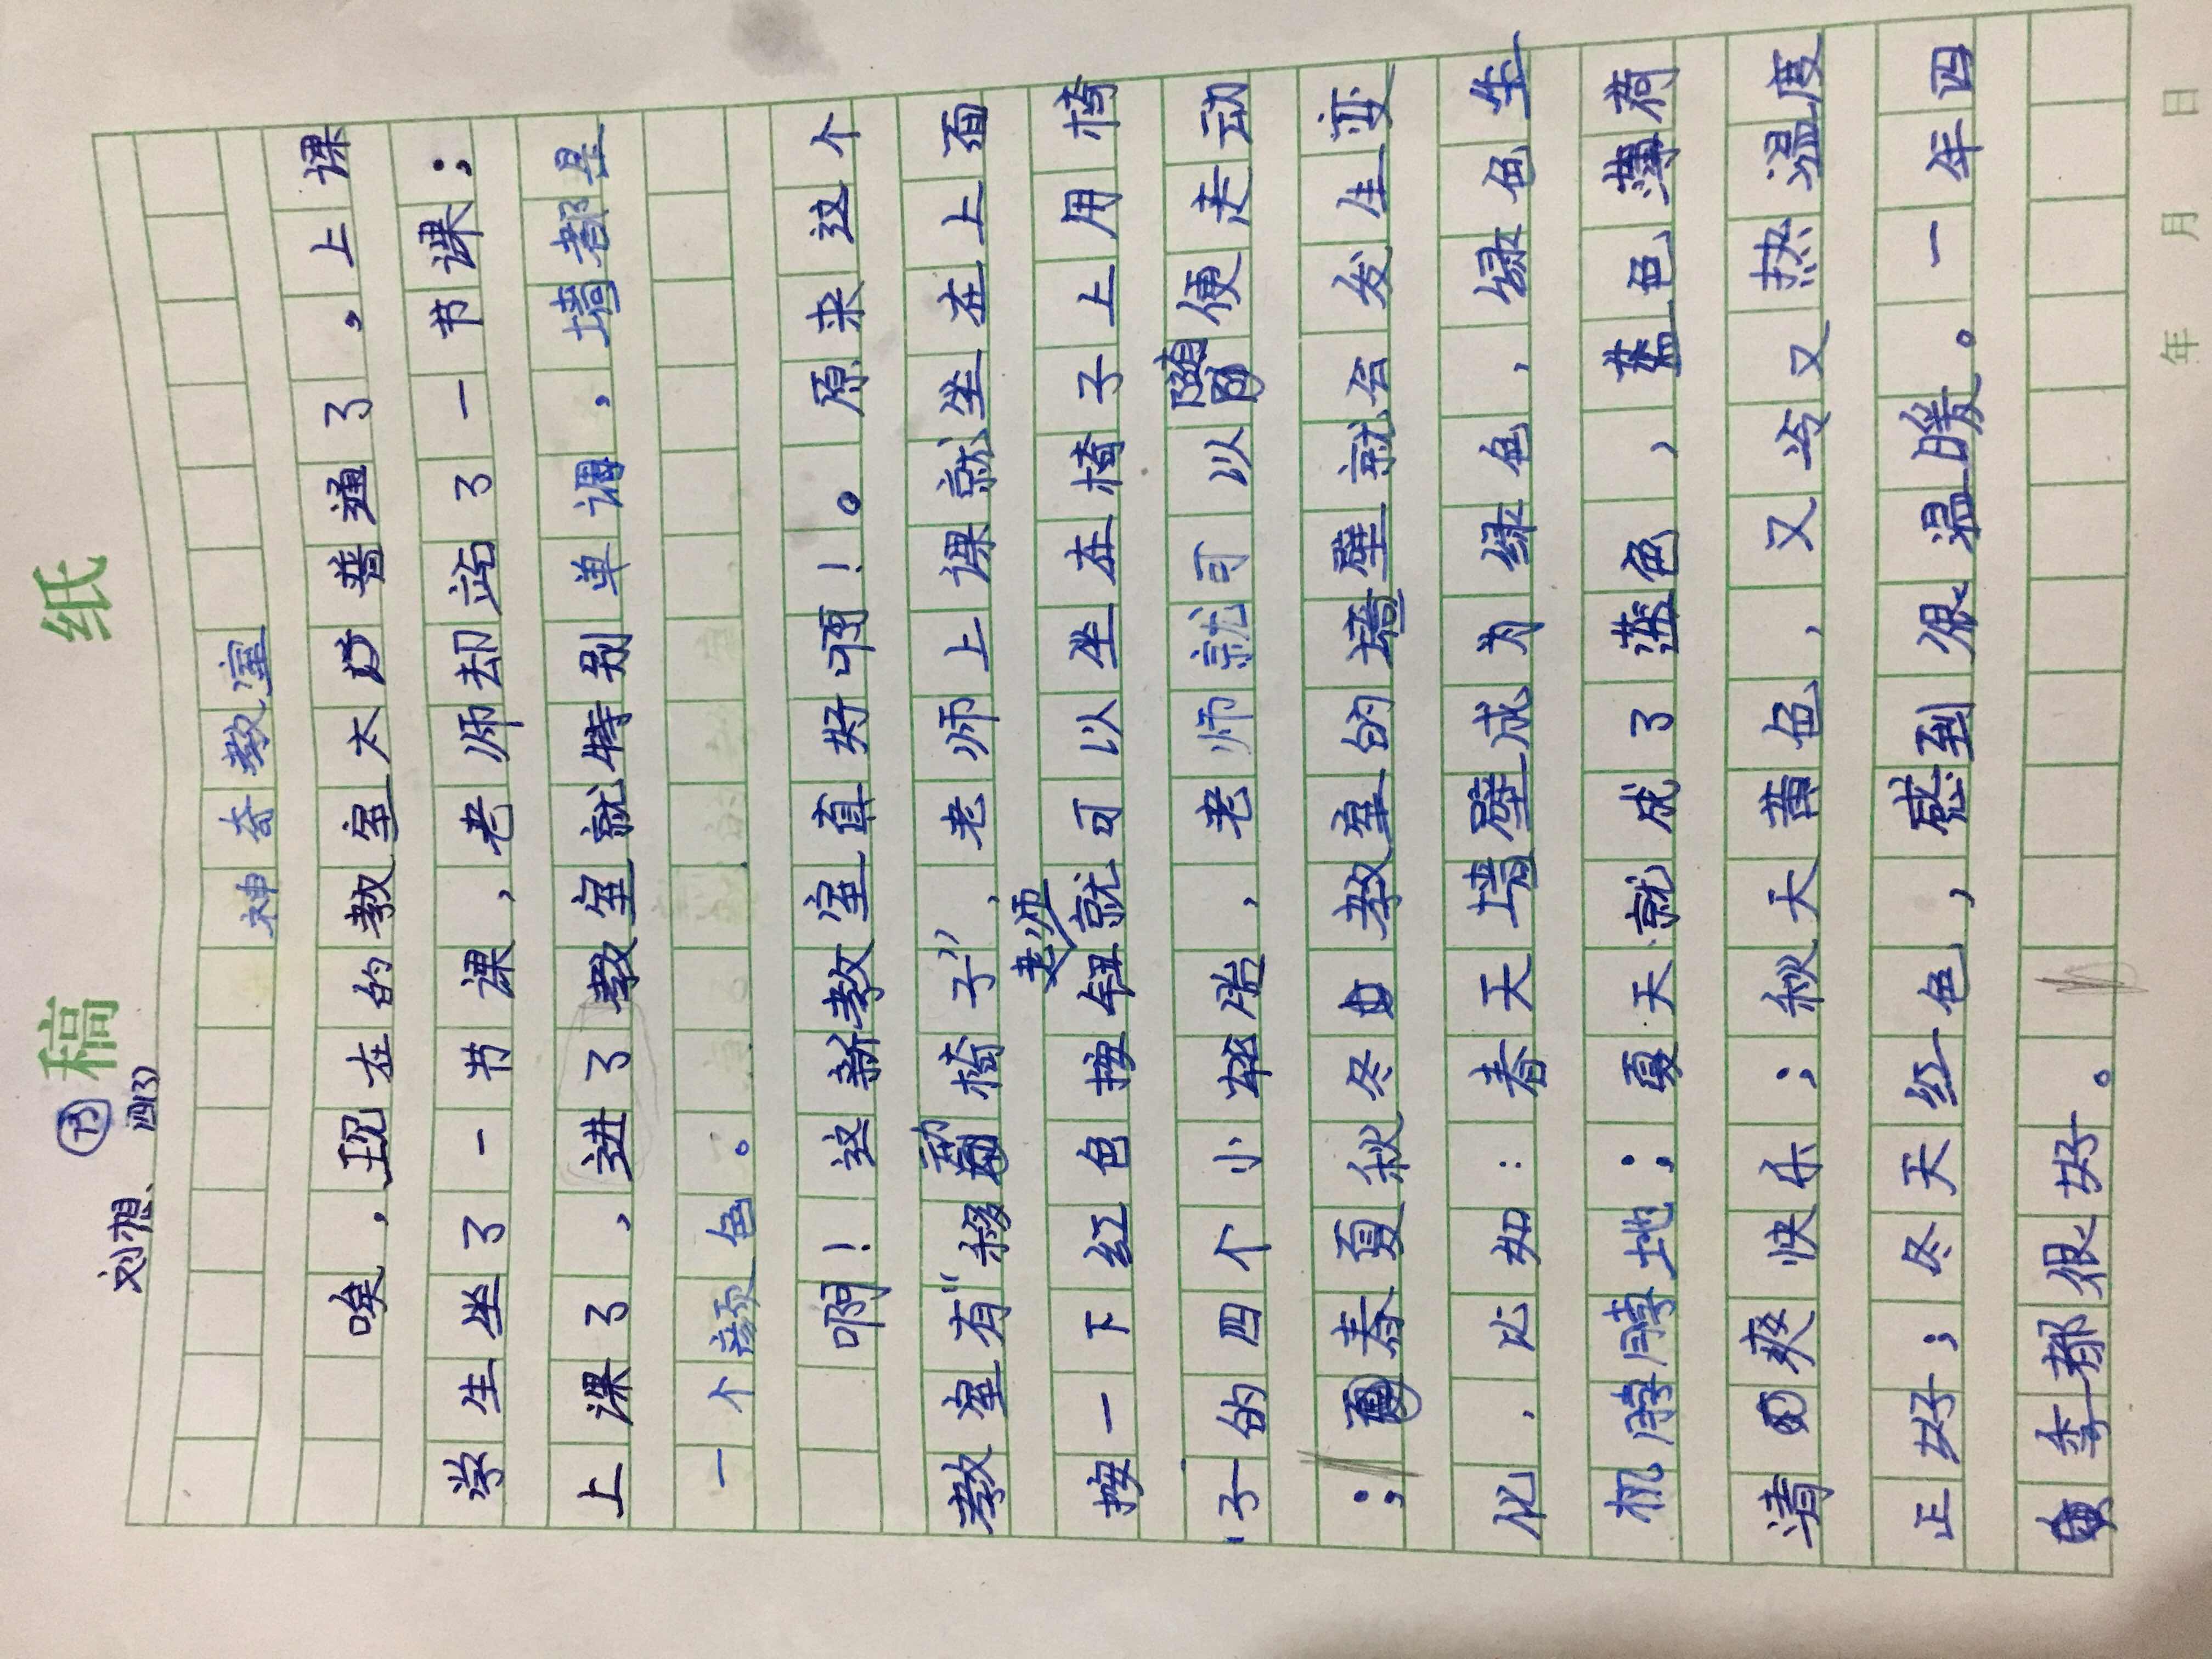 稿 纸
刘想、四(3)
神奇教室
唉,现在的教室太普通了,上课
学生坐了一节课,老师却站了一节课;
上课了,进了教室就特别单调,墙都是
一个颜色。
啊!这新教室真好啊!。原来这个
教室有“移动椅子”,老师上课就坐在上面
老师
按一下红色按钮就可以坐在椅子上用椅
子的四个小轮胎,老师就可以随便走动
;春夏秋冬教室的墙壁就会发生变
化,比如:春天墙壁成为绿色,绿色生
机勃勃地;夏天就成了蓝色,蓝色薄荷
清爽快乐;秋天黄色,又冷又热温度
正好;冬天红色,感到很温暖。一年四
季都很好。
年 月 日